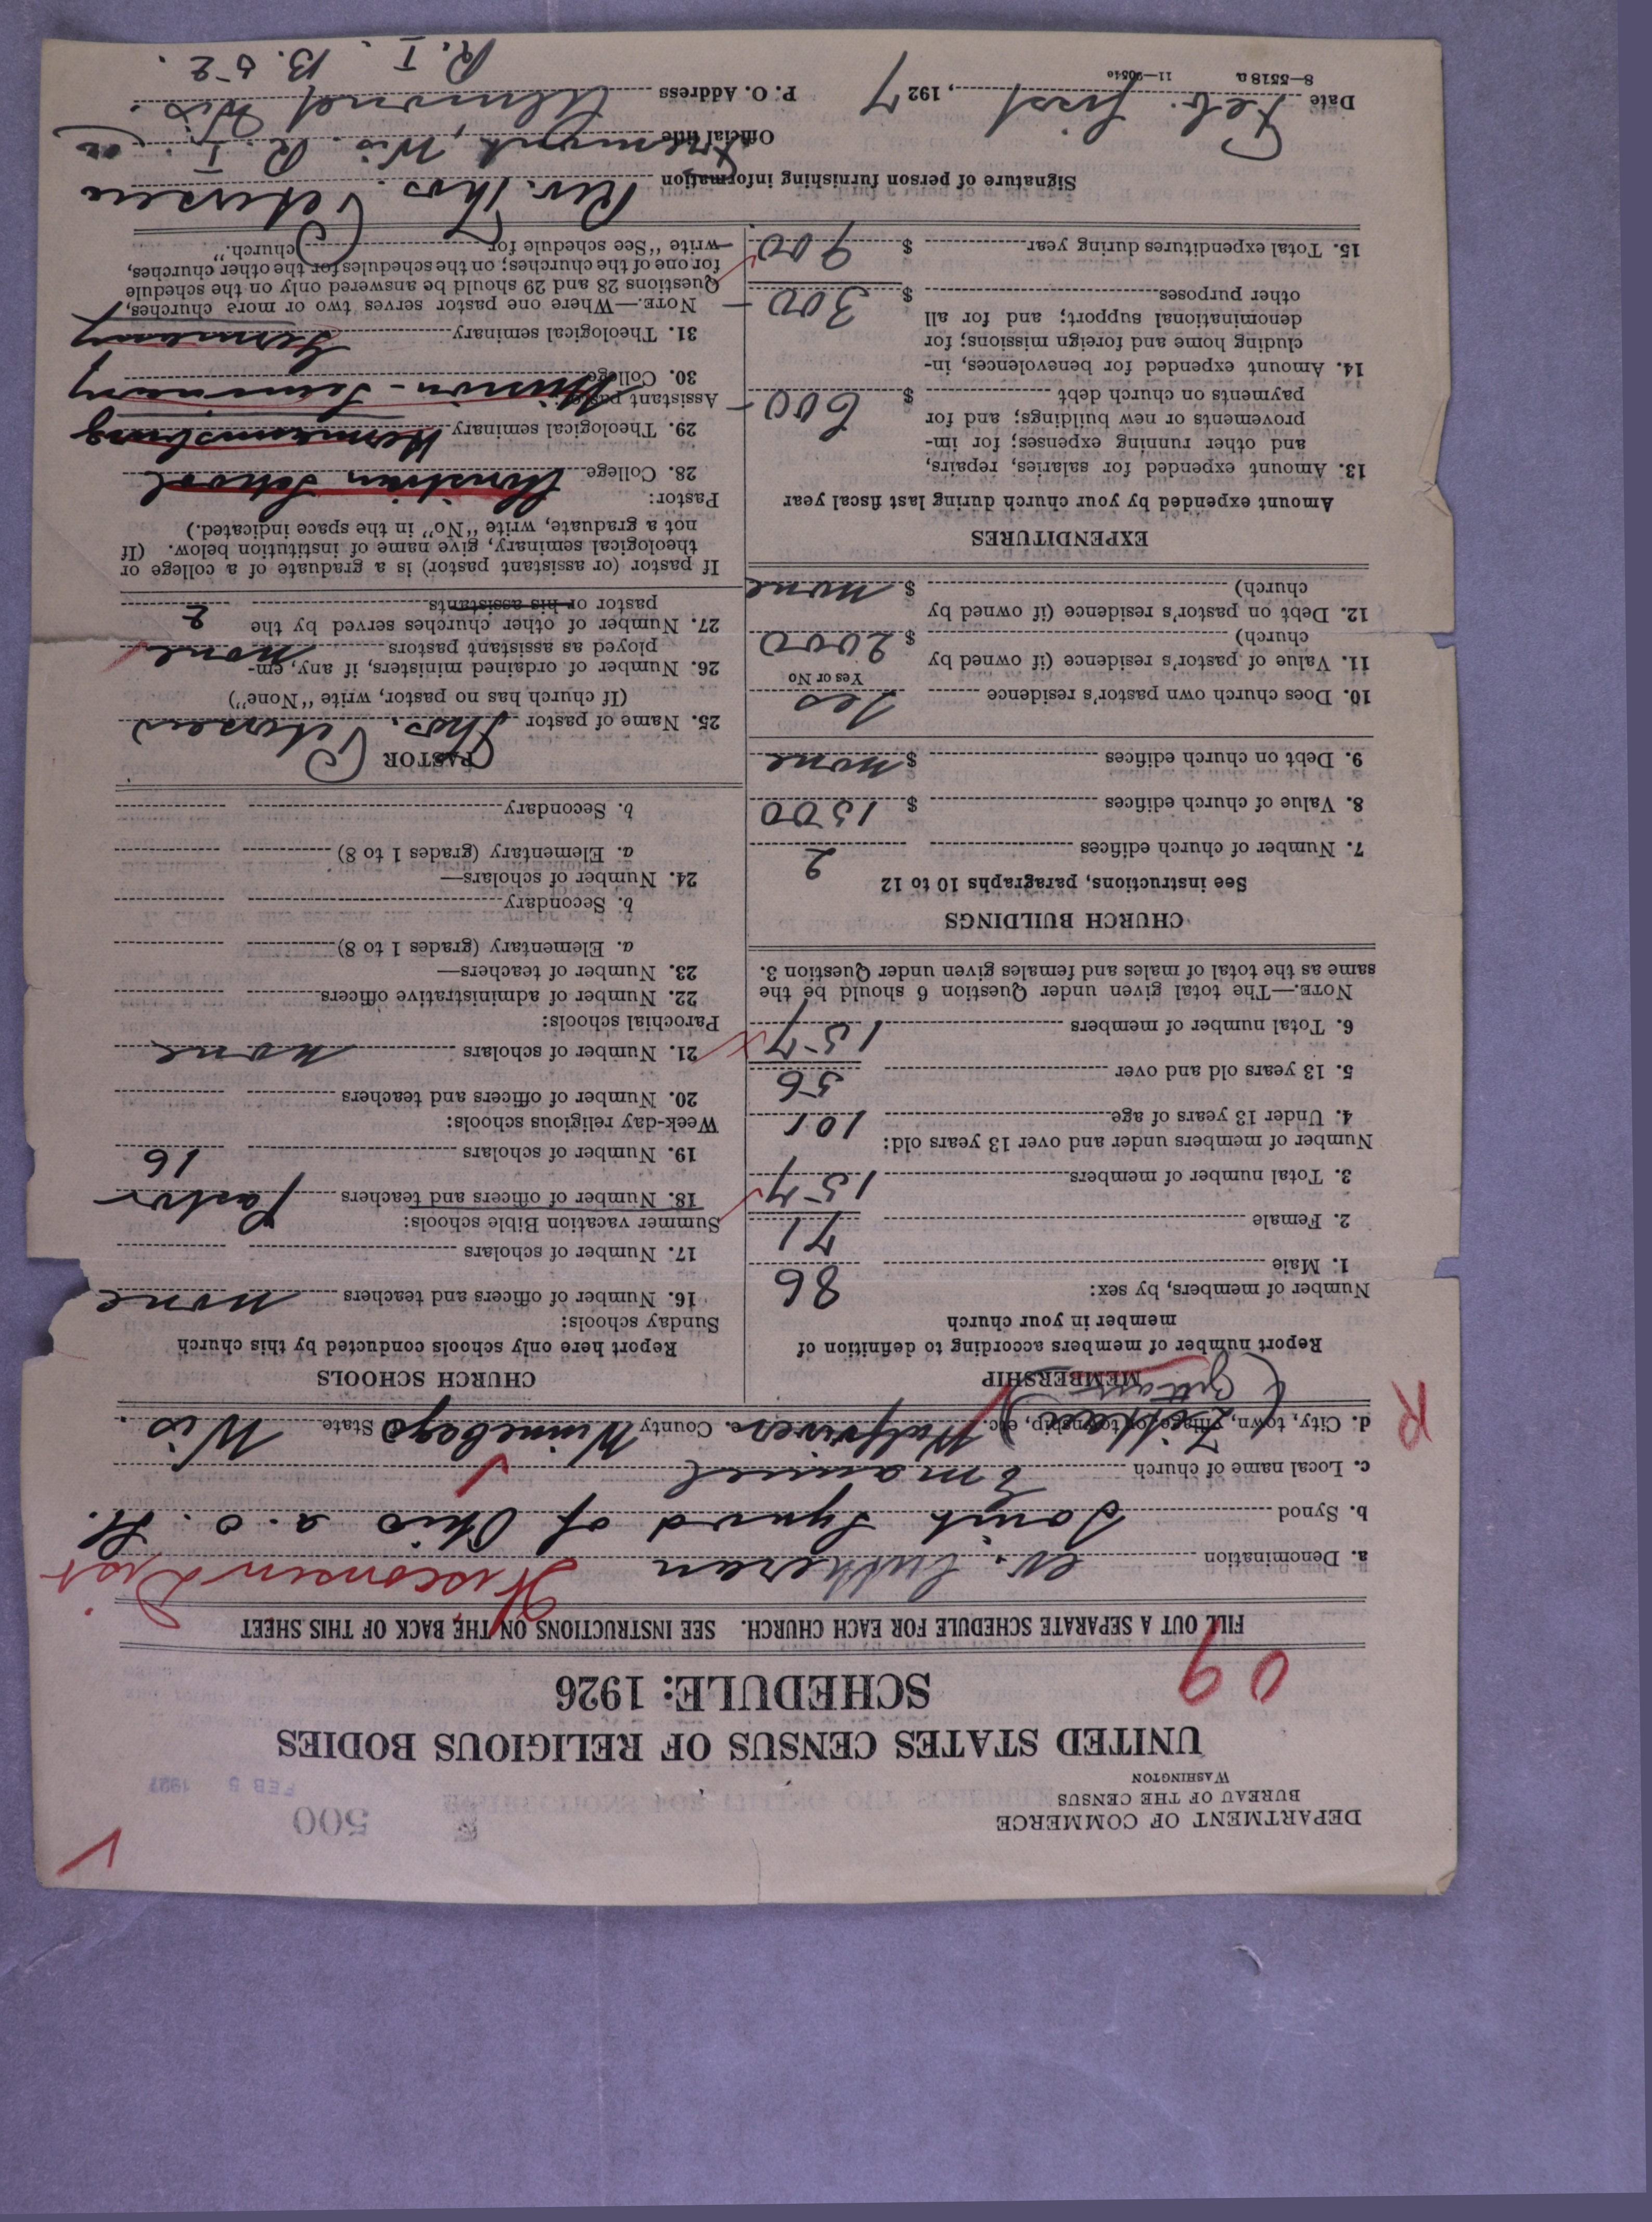 DEPARTMENT OF COMMERCE
BUREAU OF THE CENSUS
WASHINGTON
500
FEB 5 1927
UNITED STATES CENSUS OF RELIGIOUS BODIES
SCHEDULE: 1926
09
FILL OUT A SEPARATE SCHEDULE FOR EACH CHURCH. SEE INSTRUCTIONS ON THE BACK OF THIS SHEET
a. Denomination ev. Lutheran Wisconsin Dist
b. Synod Joint Synod of Ohio a. o. St.
c. Local name of church Emanuel
d. City, town, village, or township, etc. Wolfriver County Winnebago State Wis.
R
MEMBERSHIP
Report number of members according to definition of
member in your church
Number of members, by sex:
1. Male 86
2. Female 71
3. Total number of members 157
Number of members under and over 13 years old:
4. Under 13 years of age 101
5. 13 years old and over 56
6. Total number of members 157
NOTE.—The total given under Question 6 should be the
same as the total of males and females given under Question 3.
CHURCH BUILDINGS
See instructions, paragraphs 10 to 12
7. Number of church edifices 2
8. Value of church edifices $ 1500
9. Debt on church edifices $ none
10. Does church own pastor's residence Yes
Yes or No
11. Value of pastor's residence (if owned by
church) $ 2000
12. Debt on pastor's residence (if owned by
church) $ none
EXPENDITURES
Amount expended by your church during last fiscal year
13. Amount expended for salaries, repairs,
and other running expenses; for im-
provements or new buildings; and for
payments on church debt $ 600
14. Amount expended for benevolences, in-
cluding home and foreign missions; for
denominational support; and for all
other purposes $ 300
15. Total expenditures during year $ 900
CHURCH SCHOOLS
Report here only schools conducted by this church
Sunday schools:
16. Number of officers and teachers none
17. Number of scholars
Summer vacation Bible schools:
18. Number of officers and teachers Pastor
19. Number of scholars 16
Week-day religious schools:
20. Number of officers and teachers
21. Number of scholars none
Parochial schools:
22. Number of administrative officers
23. Number of teachers—
a. Elementary (grades 1 to 8)
b. Secondary
24. Number of scholars—
a. Elementary (grades 1 to 8)
b. Secondary
PASTOR
25. Name of pastor Thos. Petersen
(If church has no pastor, write "None")
26. Number of ordained ministers, if any, em-
ployed as assistant pastors none
27. Number of other churches served by the
pastor or his assistants 2
If pastor (or assistant pastor) is a graduate of a college or
theological seminary, give name of institution below. (If
not a graduate, write "No" in the space indicated.)
Pastor:
28. College Christian School
29. Theological seminary Hermannsburg
Assistant pastor:
30. College Mission-Seminary
31. Theological seminary Germany
NOTE.—Where one pastor serves two or more churches,
Questions 28 and 29 should be answered only on the schedule
for one of the churches; on the schedules for the other churches,
write "See schedule for church."
Signature of person furnishing information Rev. Thos. Petersen
Official title Fremont, Wis. R. I. or
Date Feb. first, 1927 P. O. Address Almond Wis.
8—5518 a
R. I. B. 52.